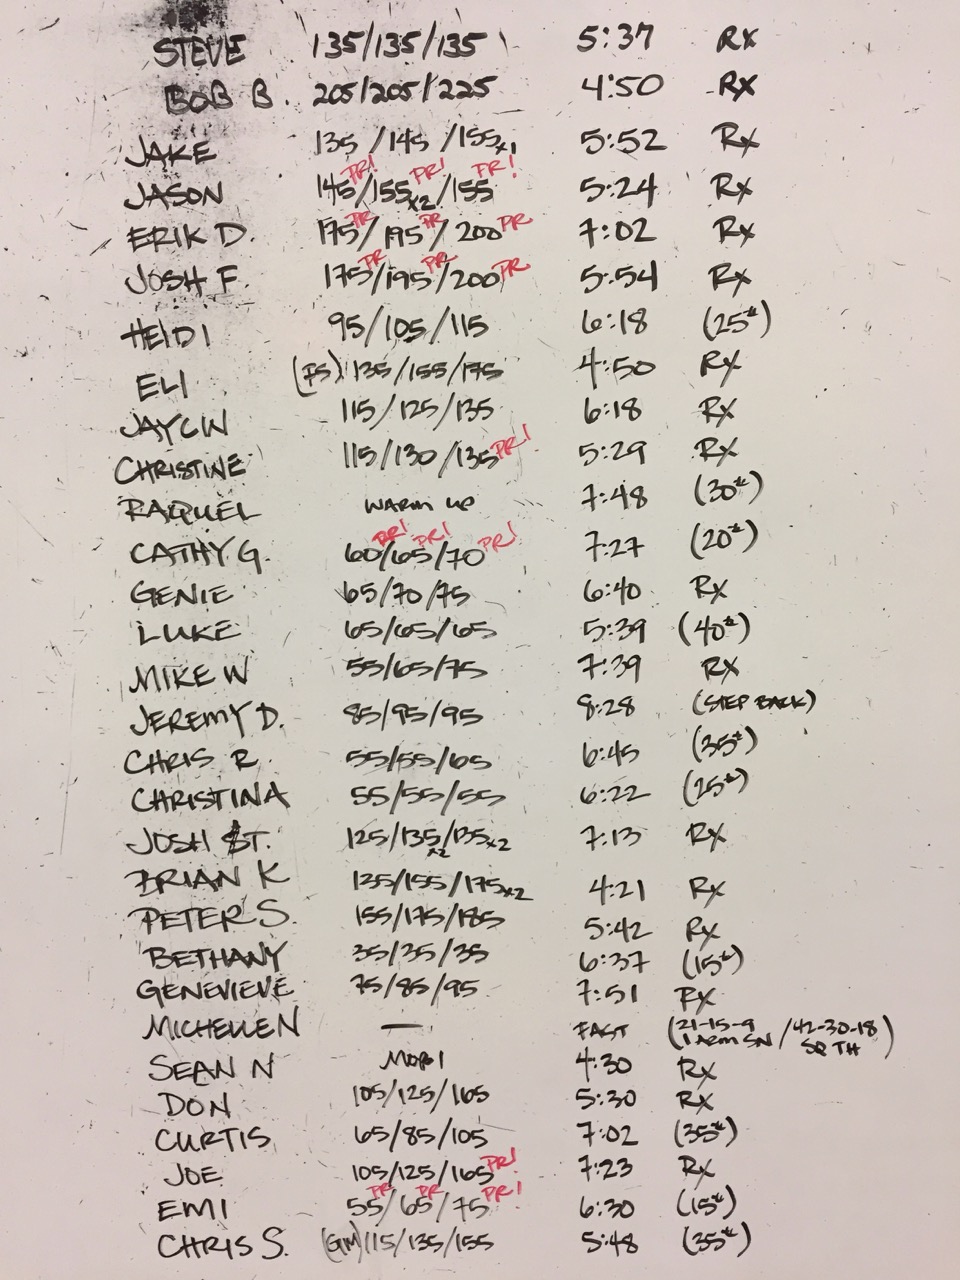 STEVE 135/135/135 5:37 Rx
BOB B. 205/205/225 4:50 Rx
JAKE 135/145/155x1 5:52 Rx
JASON 145PR!/155x2PR!/155PR! 5:24 Rx
ERIK D. 175PR/195PR/200PR 7:02 Rx
JOSH F. 175PR/195PR/200PR 5:54 Rx
HEIDI 95/105/115 6:18 (25#)
ELI (FS) 135/155/175 4:50 Rx
JAYCIN 115/125/135 6:18 Rx
CHRISTINE 115/130/135PR! 5:29 Rx
RAQUEL WARM UP 7:48 (30#)
CATHY G. 60PR!/65PR!/70PR! 7:27 (20#)
GENIE 65/70/75 6:40 Rx
LUKE 65/65/65 5:39 (40#)
MIKE W 55/65/75 7:39 Rx
JEREMY D. 85/95/95 8:28 (STEP BACK)
CHRIS R. 55/55/65 6:45 (35#)
CHRISTINA 55/55/55 6:22 (25#)
JOSH ST. 125/135x2/135x2 7:13 Rx
BRIAN K 135/155/175x2 4:21 Rx
PETER S. 155/175/185 5:42 Rx
BETHANY 35/35/35 6:37 (15#)
GENEVIEVE 75/85/95 7:51 Rx
MICHELLE N — FAST (21-15-9 1 ARM SN / 42-30-18 SQ TH)
SEAN N MOBI 4:30 Rx
DON 105/125/165 5:30 Rx
CURTIS 65/85/105 7:02 (35#)
JOE 105/125/165PR! 7:23 Rx
EMI 55PR/65PR/75PR! 6:30 (15#)
CHRIS S. (GM) 115/135/155 5:48 (35#)